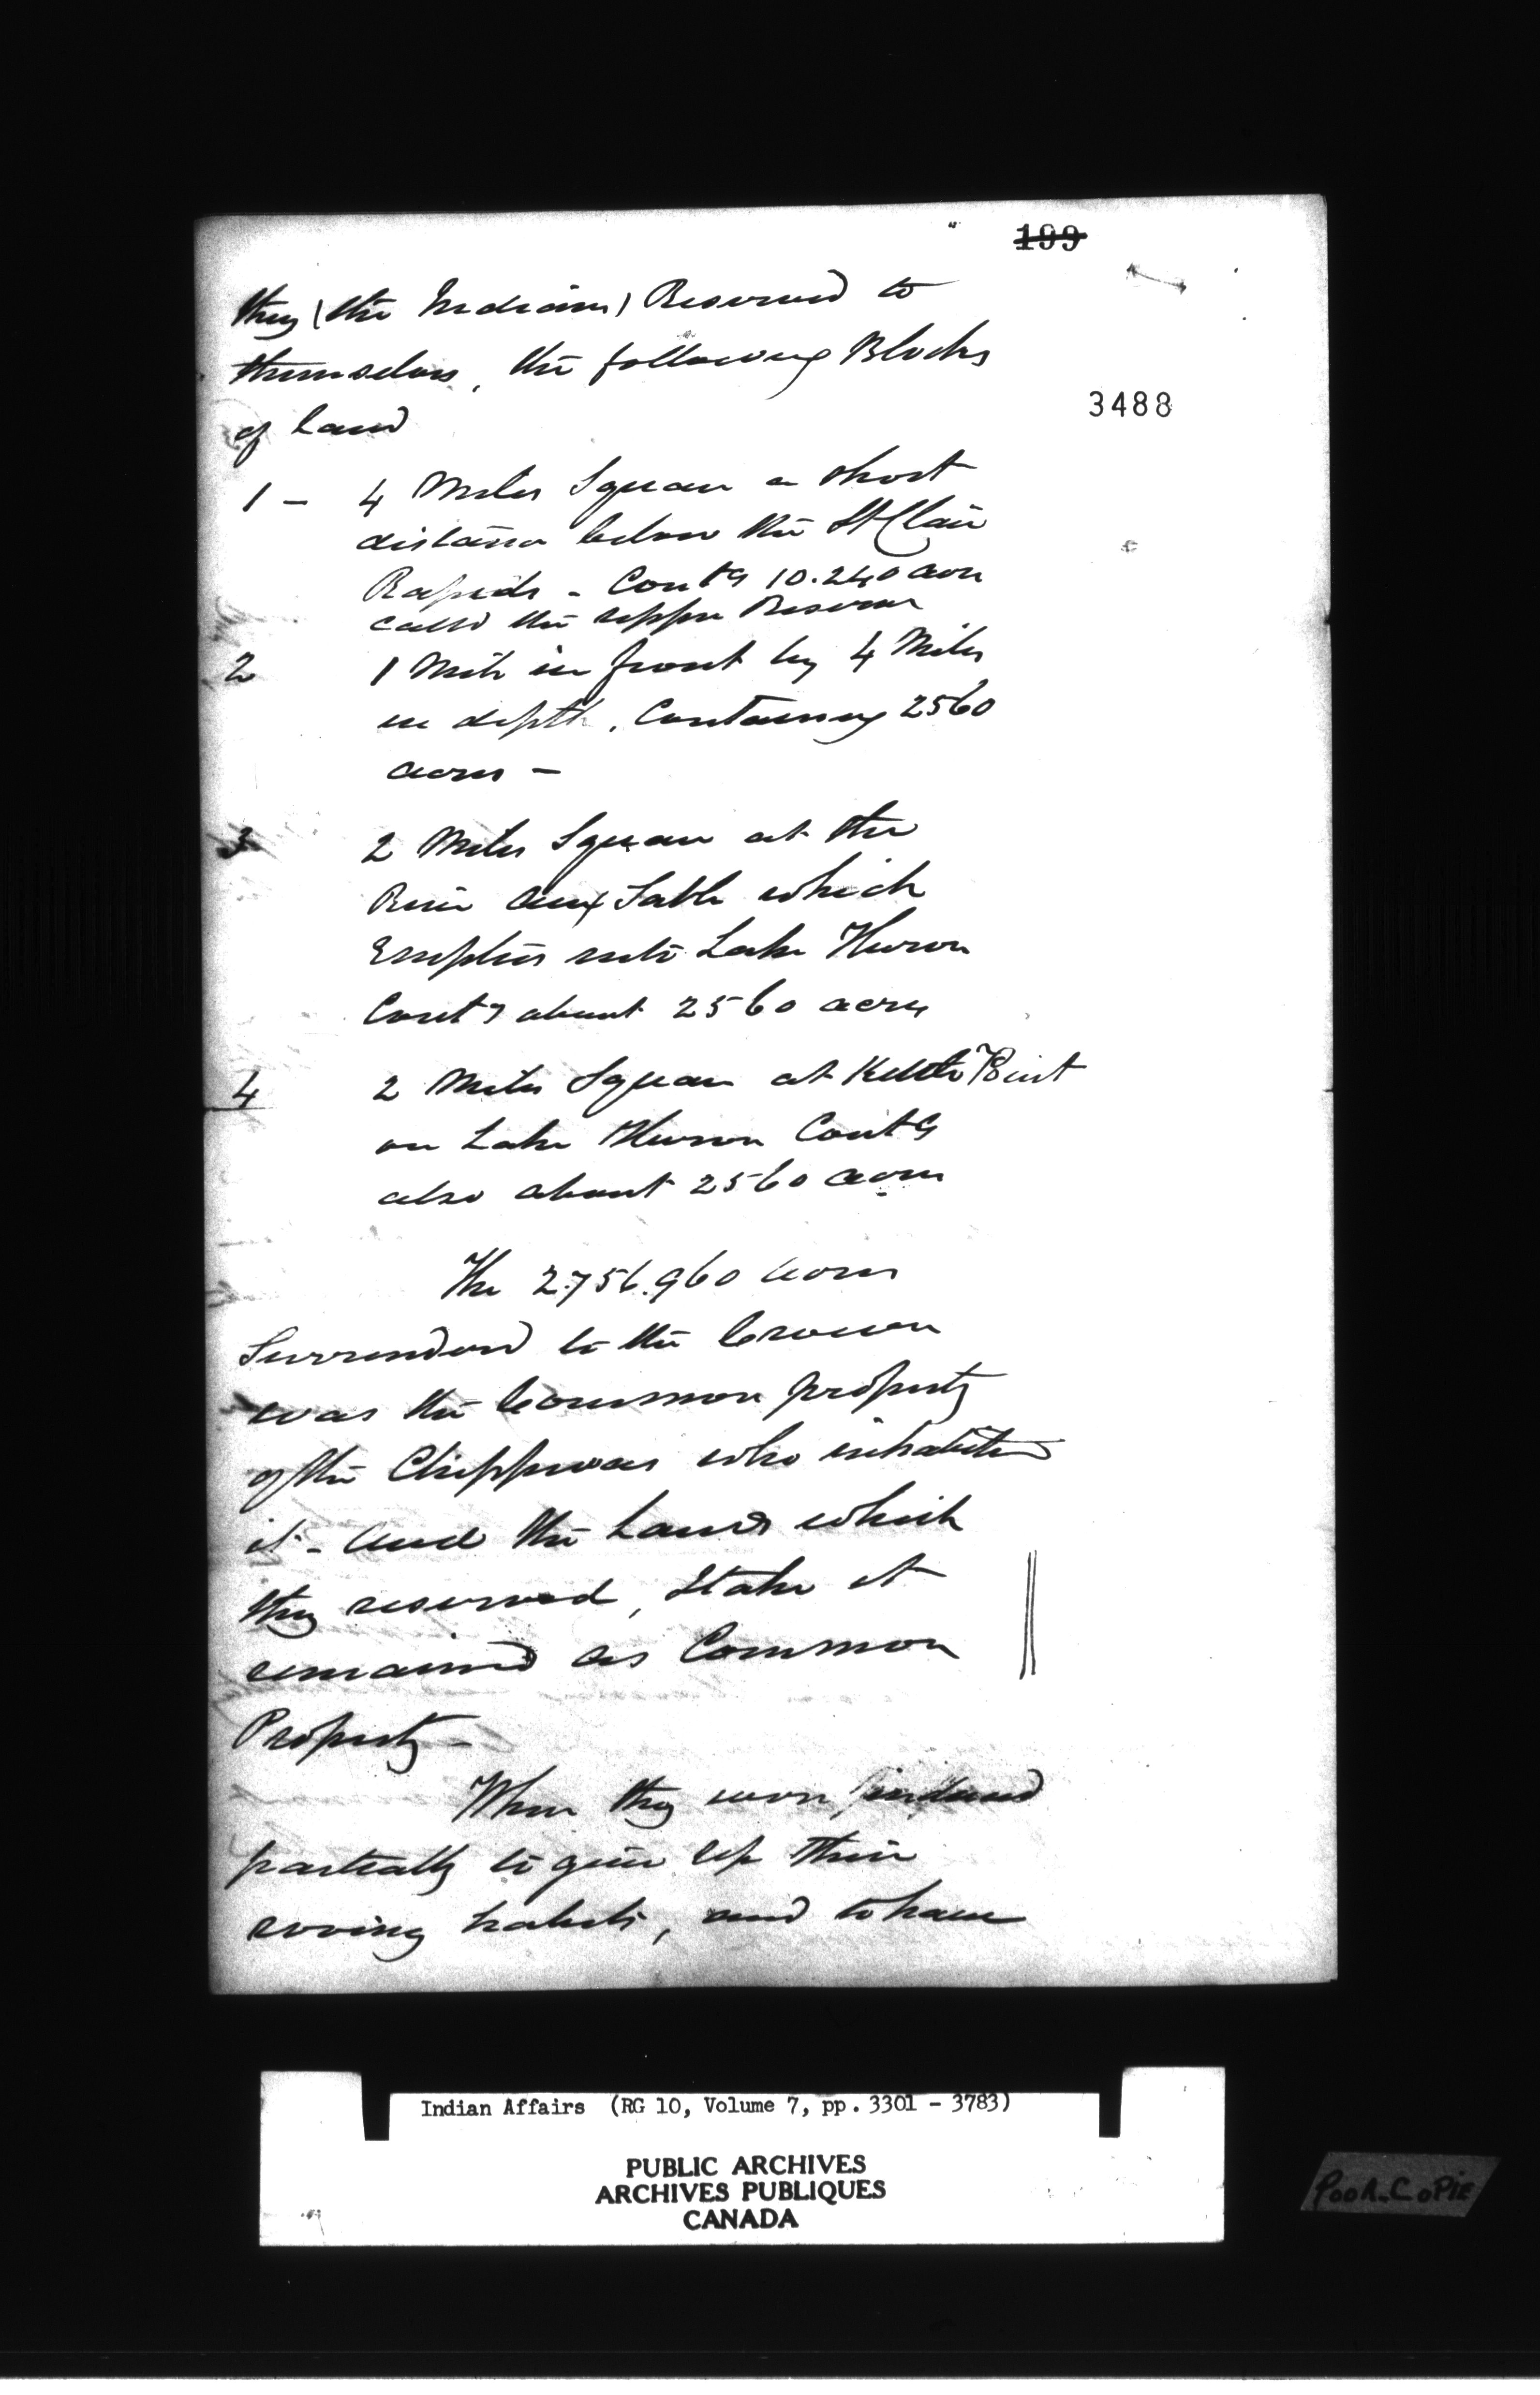 199
they (the Indians) Reserved to
themselves, the following Blocks
of Land
3488
1 - 4 Miles Square a short
distance below the St Clair
Rapids - Contg 10.240 acres
called the upper Reserve
2 1 Mile in front by 4 Miles
in depth. Containing 2560
acres -
3 2 Miles Square at the
River aux Sable which
Empties into Lake Huron
Contg about 2560 acres
4 2 Miles Square at Kettle Point
on Lake Huron Contg
also about 2560 acres
The 2.756.960 acres
Surrendered to the Crown
was the Common property
of the Chippewas who inhabited
it - and the Lands which
they reserved, I take it
remained as Common
Property -
When they were induced
partially to give up their
roving habits, and to have
Indian Affairs (RG 10, Volume 7, pp. 3301 - 3783)
PUBLIC ARCHIVES
ARCHIVES PUBLIQUES
CANADA
POOR COPIE